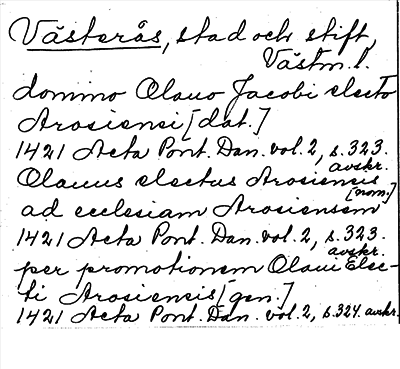 Västerås, stad och stift,
Västm. l.
domino Olauo Jacobi electo
Arosiensi [dat.]
1421 Acta Pont. Dan. vol. 2, s. 323.
avskr.
Olauus electus Arosiensis
[nom.]
ad ecclesiam Arosiensem
1421 Acta Pont. Dan. vol. 2, s. 323.
avskr.
per promotionem Olaui Elec-
ti Arosiensis [gen.]
1421 Acta Pont. Dan. vol. 2, s. 324. avskr.